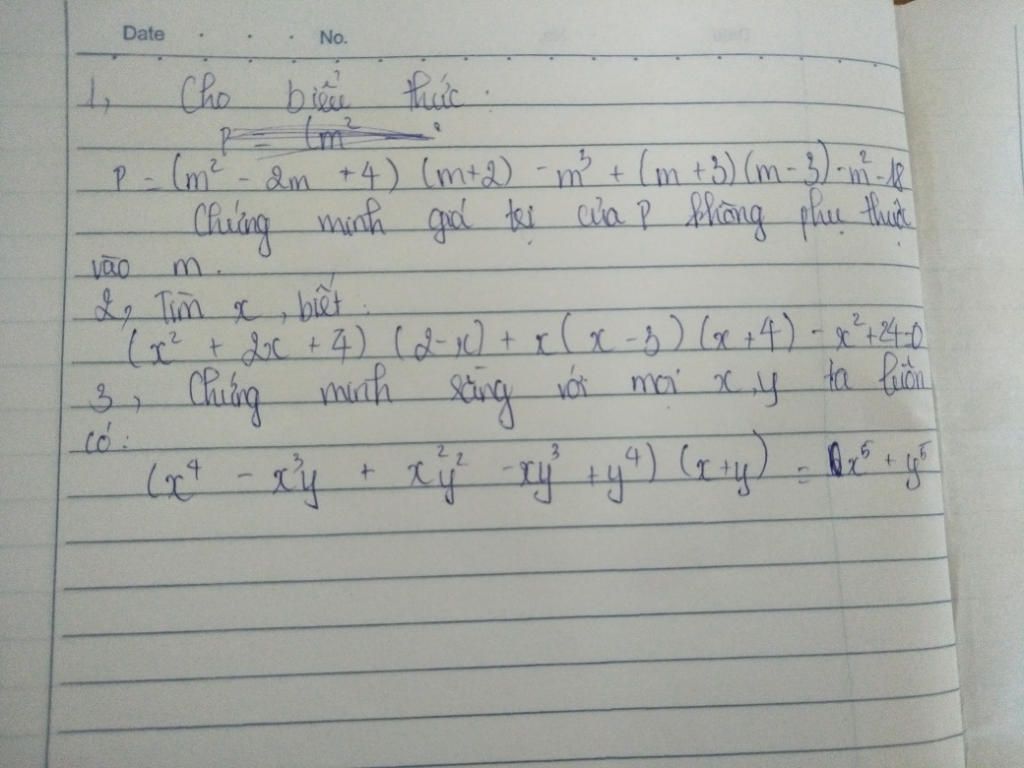 Date . . . No.
1, Cho biểu thức :
P = (m²
P = (m² - 2m + 4) (m+2) - m³ + (m+3)(m-3) - m² - 18
Chứng minh giá trị của P không phụ thuộc
vào m.
2, Tìm x, biết :
(x² + 2x + 4) (2-x) + x(x-3)(x+4) - x²+24=0
3, Chứng minh rằng với mọi x,y ta luôn
có:
(x⁴ - x³y + x²y² - xy³ + y⁴) (x+y) = x⁵ + y⁵